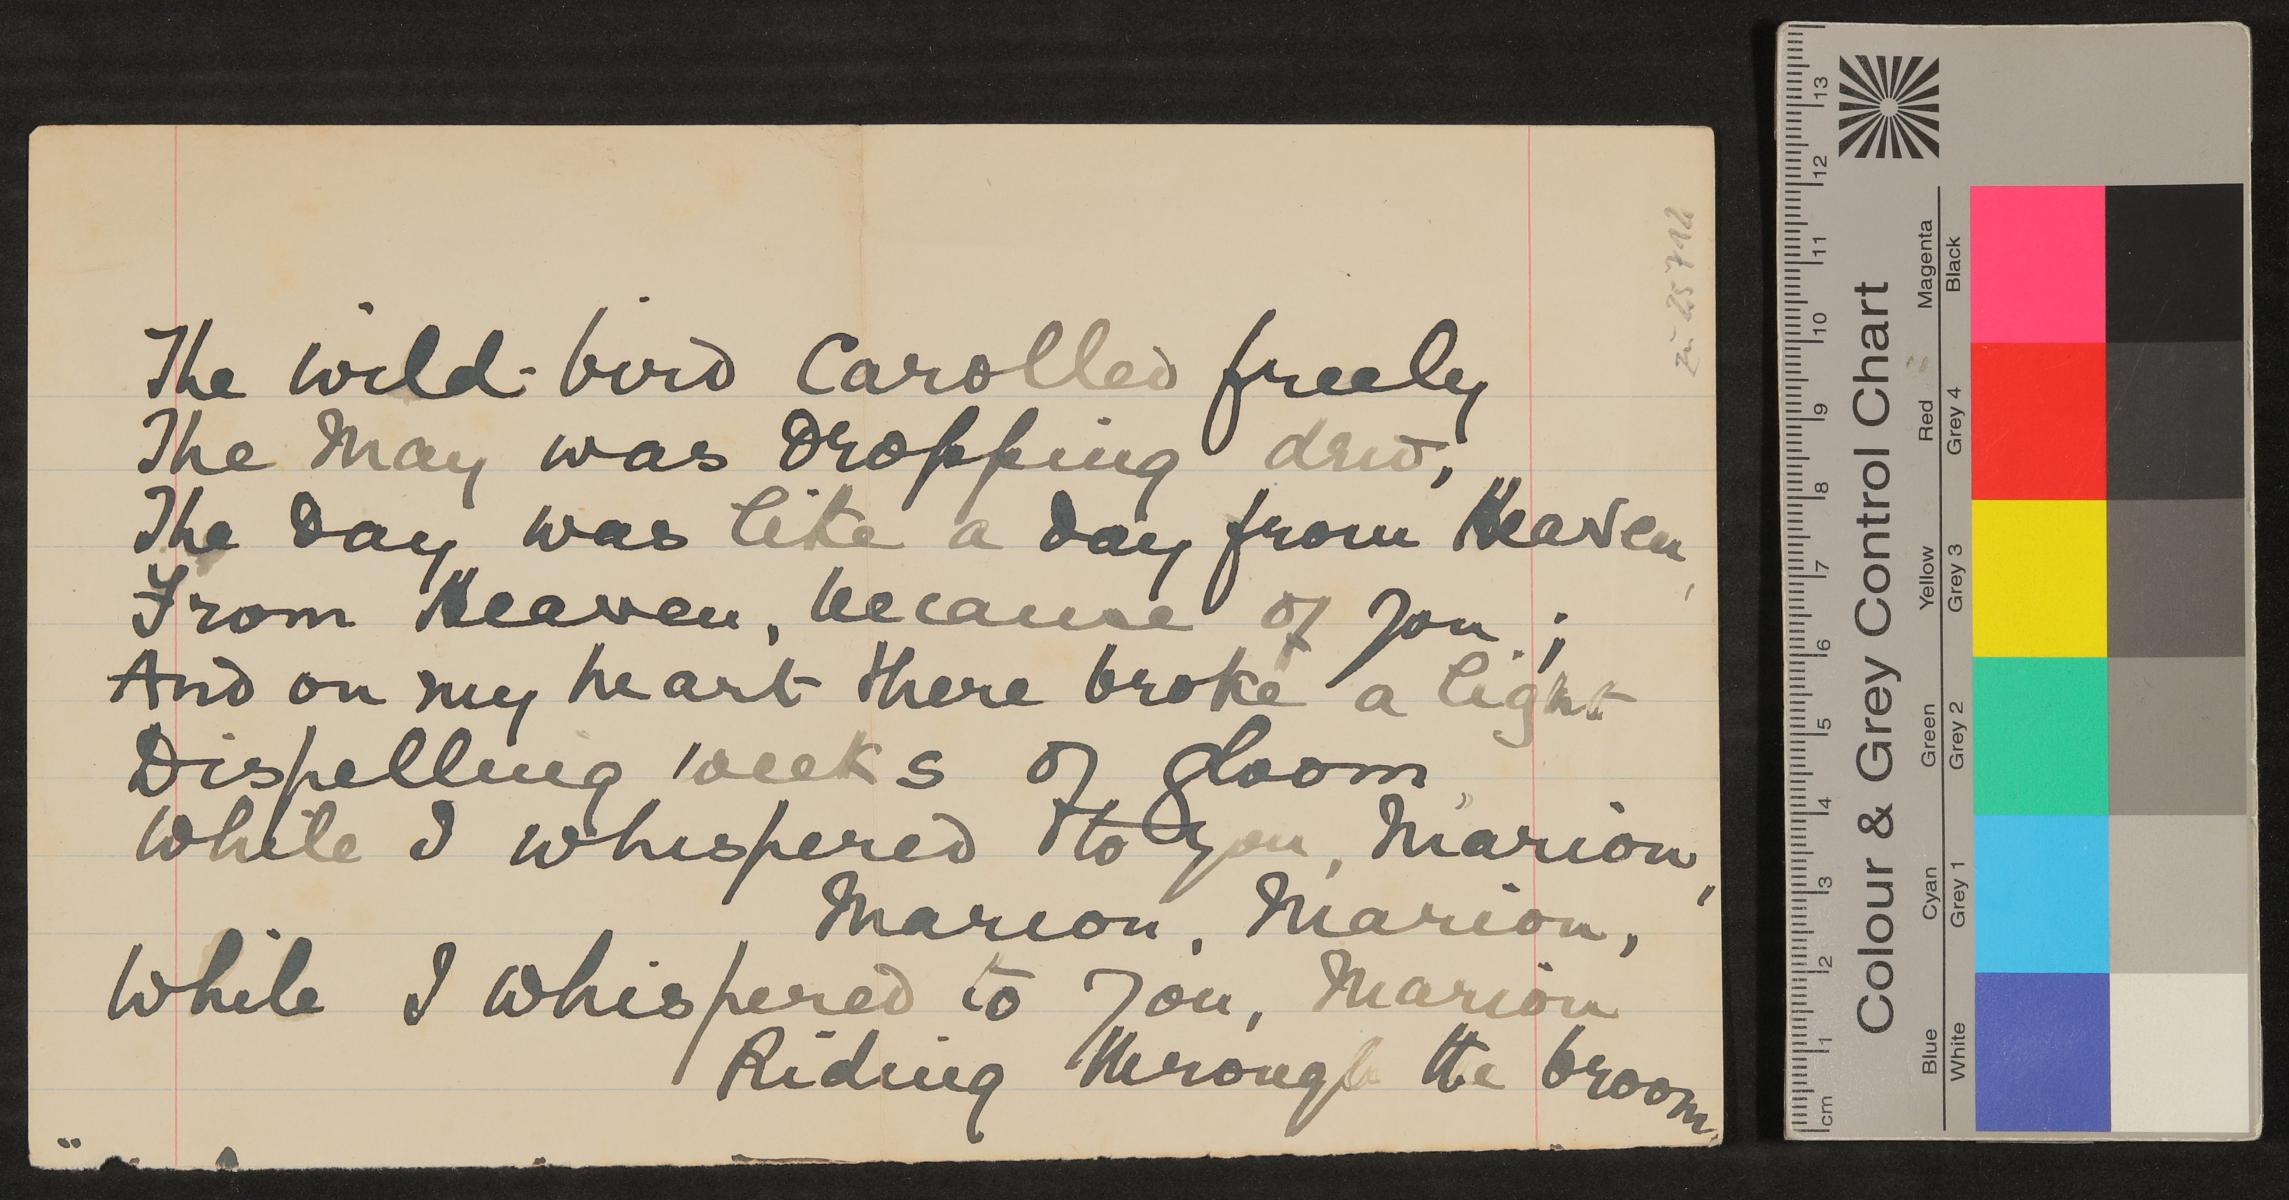 The wild-bird Carolled freely
The May was Dropping dew,
The Day was like a day from Heaven,
From Heaven, because of you;
And on my heart there broke a light
Dispelling weeks of gloom,
While I whispered to you, Marion,
Marion, Marion,
While I whispered to you, Marion
Riding through the broom.
zu 25712
Colour & Grey Control Chart
Blue Cyan Green Yellow Red Magenta
White Grey 1 Grey 2 Grey 3 Grey 4 Black
cm 1 2 3 4 5 6 7 8 9 10 11 12 13